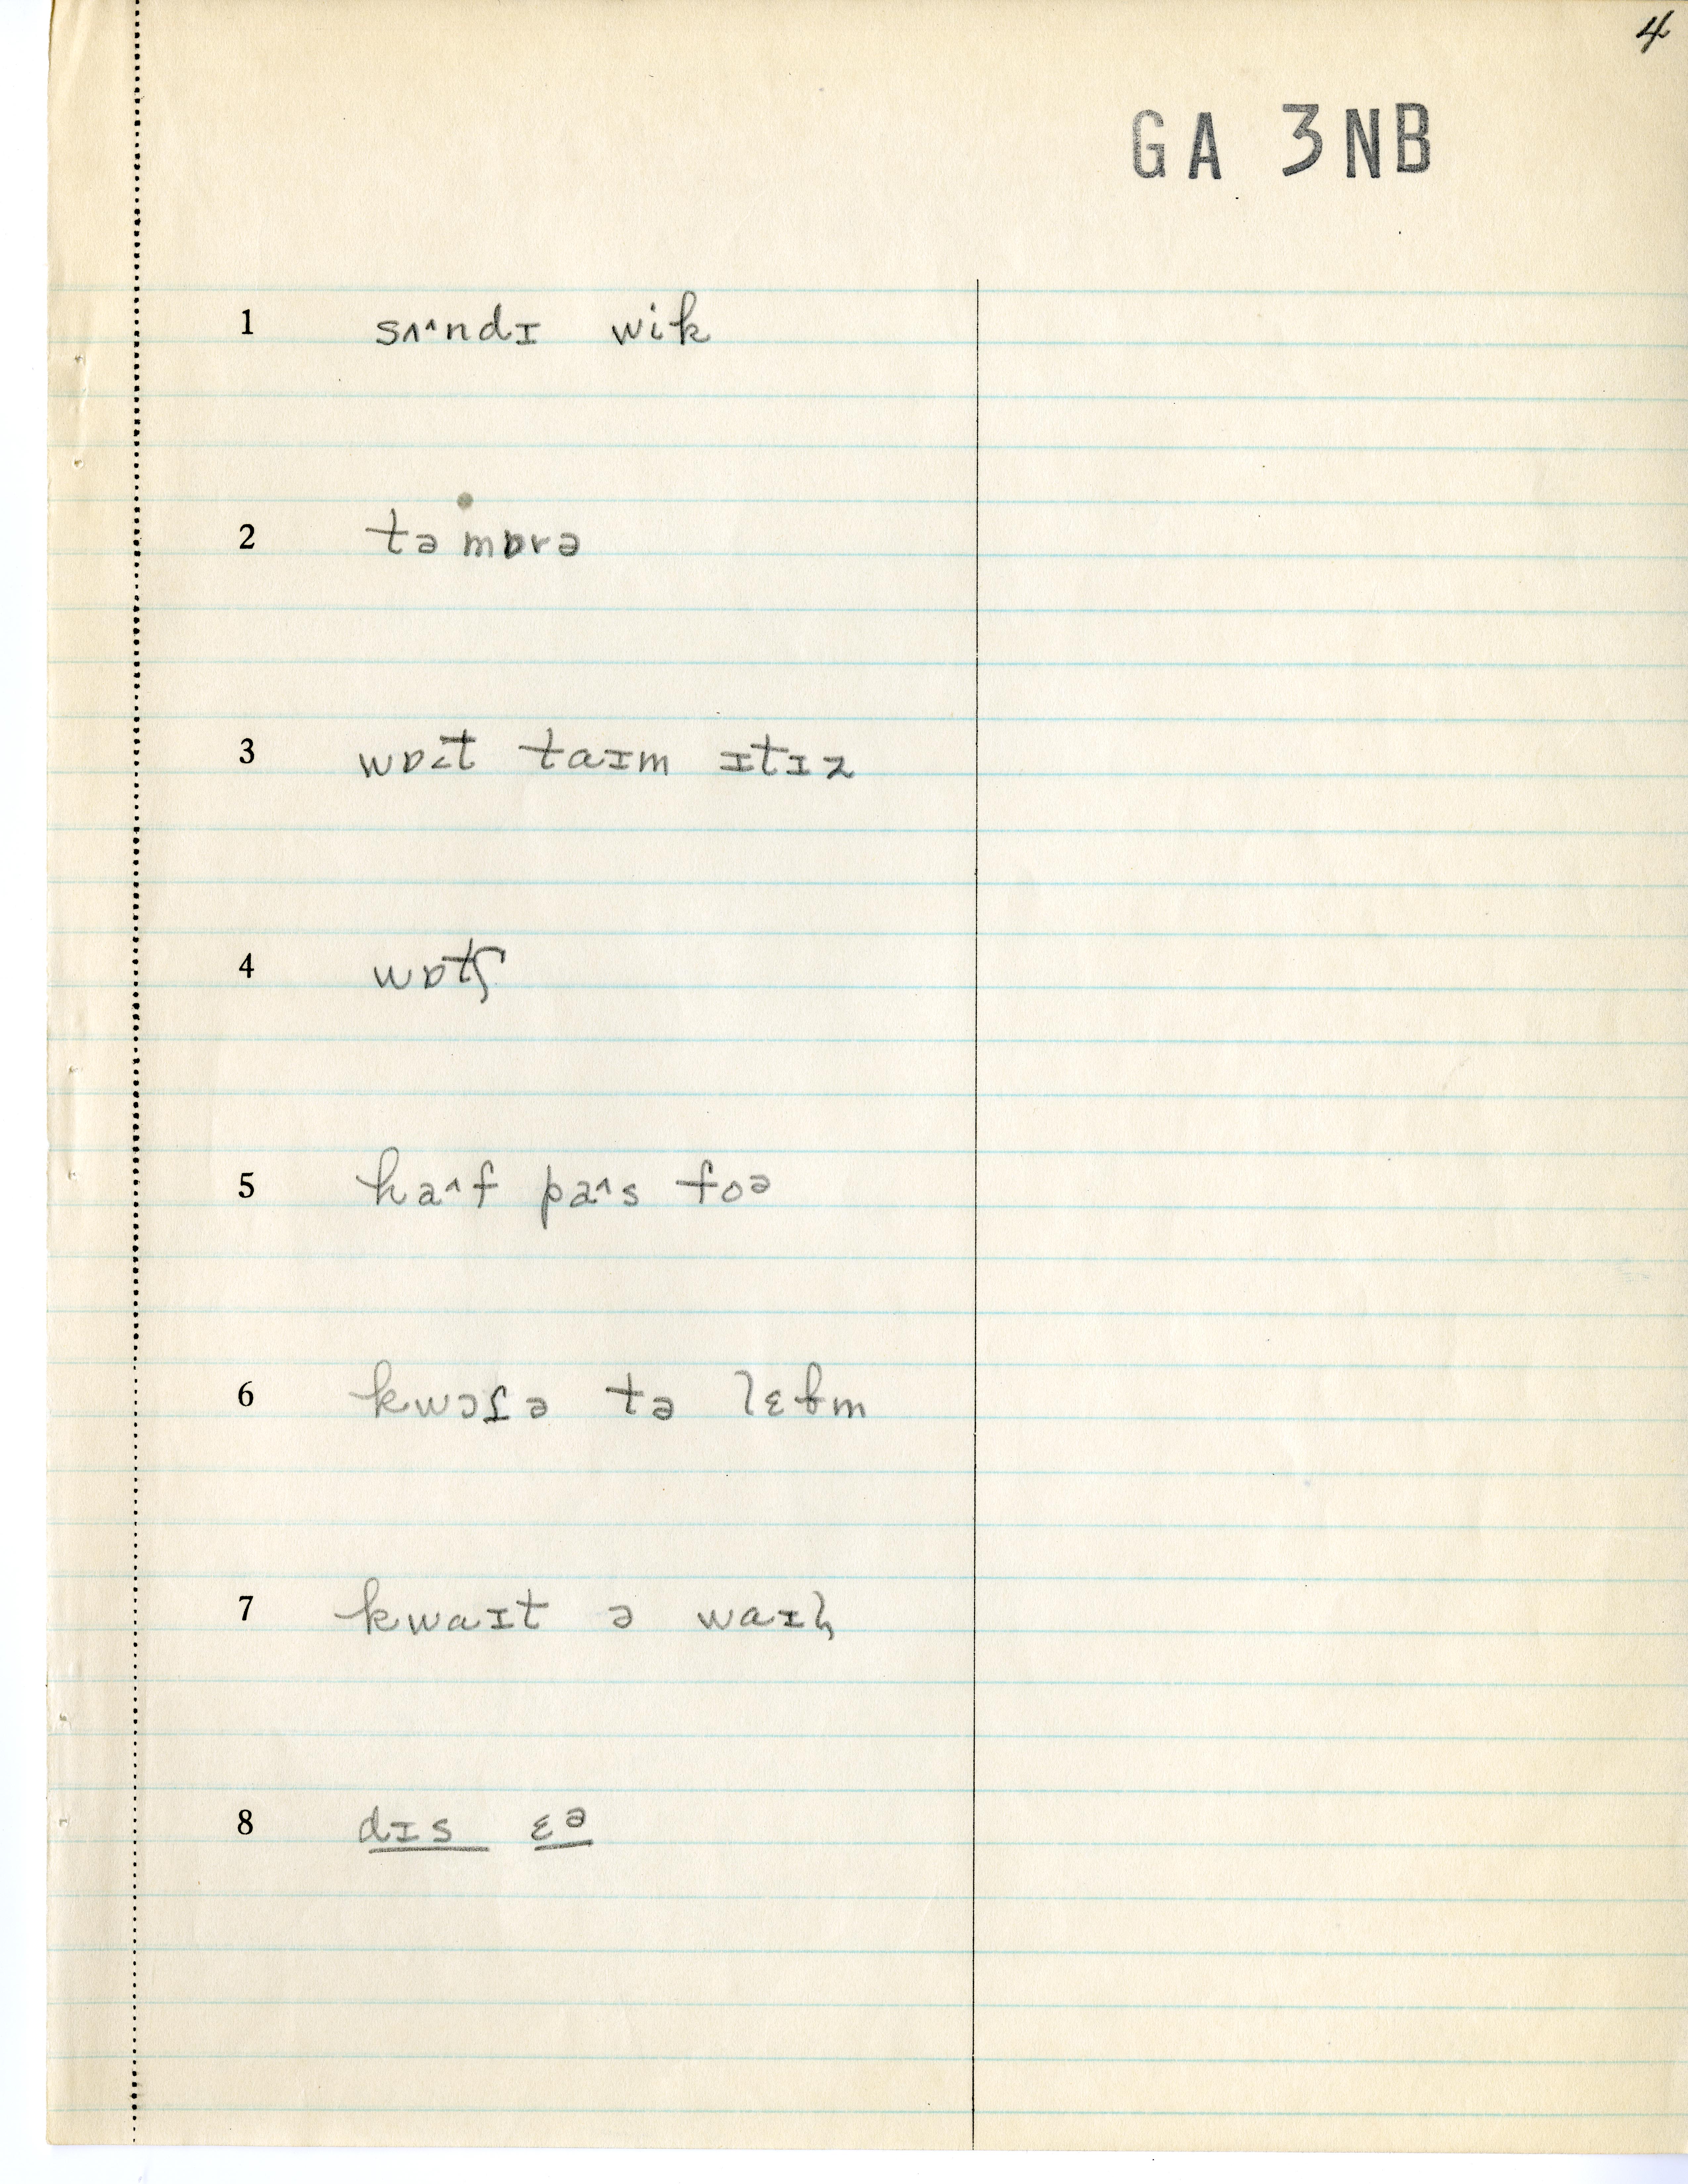 4
GA 3NB
1 sʌ^ndɪ wik
2 təmɒrə
3 wɒ<t taɪm ɪtɪz
4 wɒtʃ
5 ha^f pa^s foə
6 kwɔɾə tə lɛɓm
7 kwaɪt ə waɪl
8 dɪs ɛə